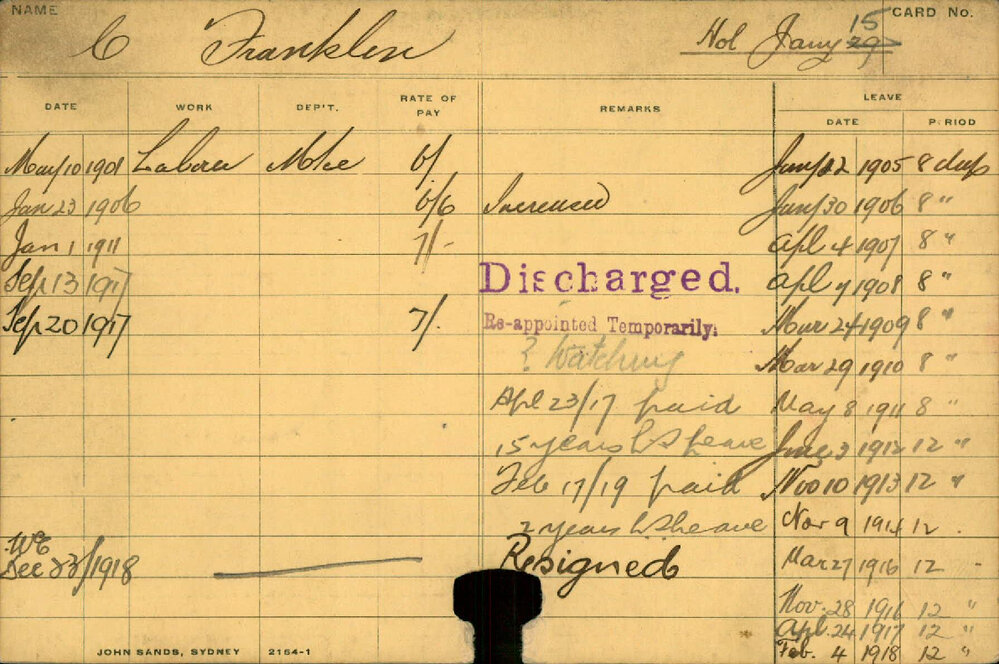 NAME CARD No.
C Franklin Hol Jany 29 15
DATE WORK DEP'T. RATE OF PAY REMARKS LEAVE
DATE PERIOD
May 10 1901 Laborer 6/ Jany 22 1905 8 days
Jan 23 1906 6/6 Increased Jany 30 1906 8 "
Jan 1 1911 7/- Apl 4 1907 8 "
Sep 13 1917 Discharged. Apl 7 1908 8 "
Sep 20 1917 7/. Re-appointed Temporarily. Mar 24 1909 8 "
? Watching Mar 29 1910 8 "
Apl 23/17 paid May 8 1911 8 "
15 years L S Leave June 3 1912 12 "
Feb 17/19 paid Nov 10 1913 12 "
2 years L S Leave Nov 9 1914 12
WE
Dec 23/1918 Resigned Mar 27 1916 12 "
Nov. 28 1916 12 "
Apl. 24 1917 12 "
Feb. 4 1918 12 "
JOHN SANDS, SYDNEY 2154-1